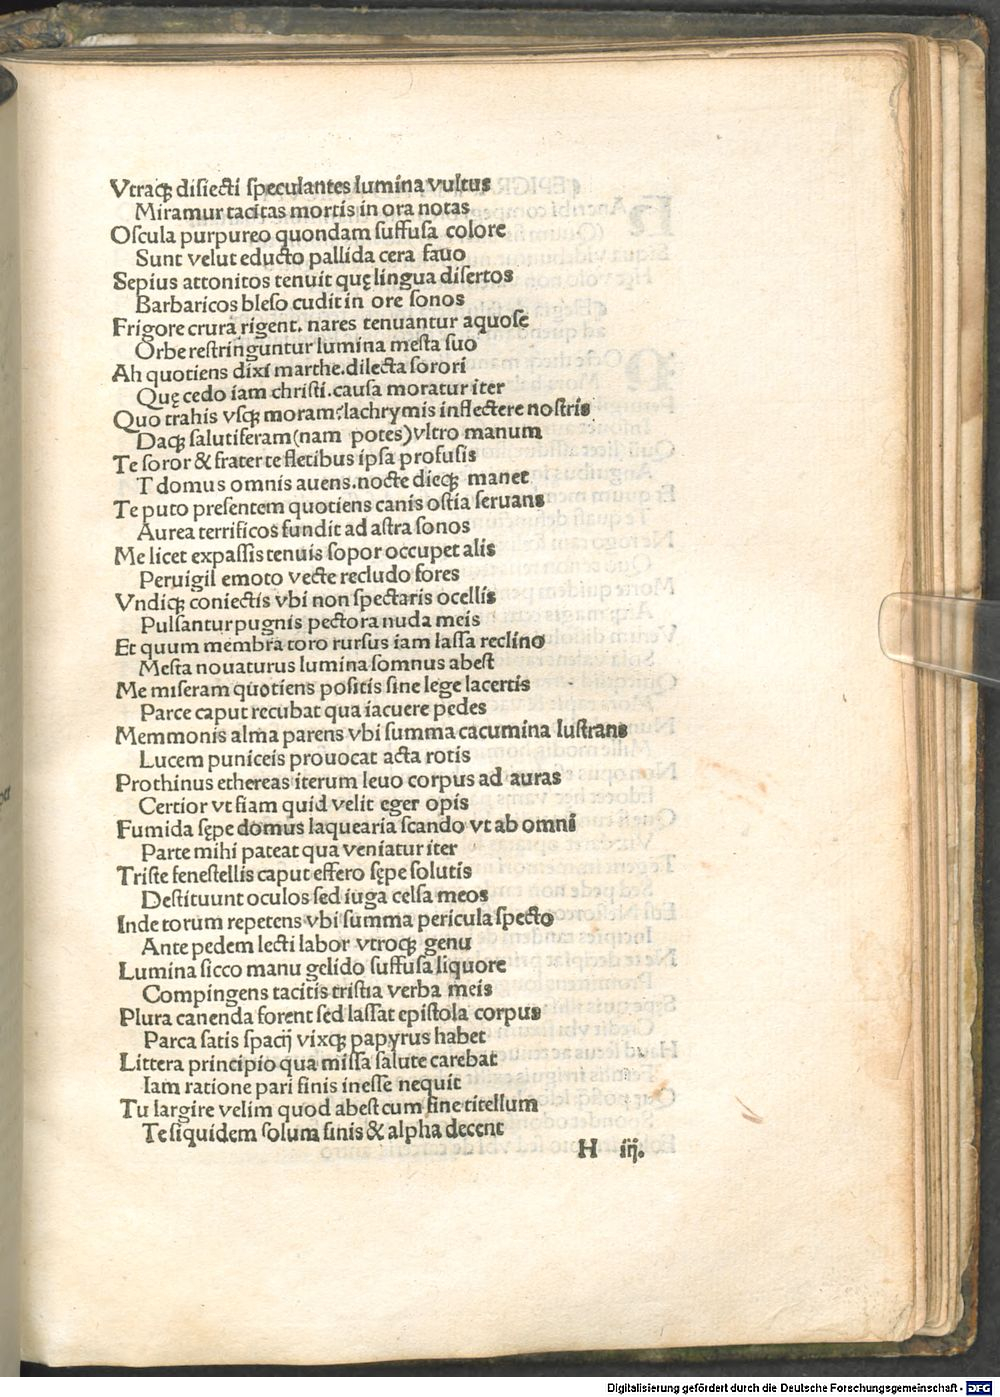 Vtraqꝫ disiecti speculantes lumina vultus
Miramur tacitas mortis in ora notas
Oscula purpureo quondam suffusa colore
Sunt velut educto pallida cera fauo
Sepius attonitos tenuit quę lingua disertos
Barbaricos bleso cudit in ore sonos
Frigore crura rigent. nares tenuantur aquose
Orbe restringuntur lumina mesta suo
Ah quotiens dixi marthe. dilecta sorori
Quę cedo iam christi. causa moratur iter
Quo trahis vsqꝫ moram? lachrymis inflectere nostris
Daqꝫ salutiferam (nam potes) vltro manum
Te soror & frater te fletibus ipsa profusis
T domus omnis auens. nocte dieqꝫ manet
Te puto presentem quotiens canis ostia seruans
Aurea terrificos fundit ad astra sonos
Me licet expassis tenuis sopor occupet alis
Peruigil emoto vecte recludo fores
Vndiqꝫ coniectis vbi non spectaris ocellis
Pulsantur pugnis pectora nuda meis
Et quum membra toro rursus iam lassa reclino
Mesta nouaturus lumina somnus abest
Me miseram quotiens positis sine lege lacertis
Parce caput recubat qua iacuere pedes
Memmonis alma parens vbi summa cacumina lustrans
Lucem puniceis prouocat acta rotis
Prothinus ethereas iterum leuo corpus ad auras
Certior vt fiam quid velit eger opis
Fumida sępe domus laquearia scando vt ab omni
Parte mihi pateat qua veniatur iter
Triste fenestellis caput effero sępe solutis
Destituunt oculos sed iuga celsa meos
Inde torum repetens vbi summa pericula specto
Ante pedem lecti labor vtroqꝫ genu
Lumina sicco manu gelido suffusa liquore
Compingens tacitis tristia verba meis
Plura canenda forent sed lassat epistola corpus
Parca satis spacij vixqꝫ papyrus habet
Littera principio qua missa salute carebat
Iam ratione pari finis inesse nequit
Tu largire velim quod abest cum fine titellum
Te siquidem solum finis & alpha decent
H iij.
Digitalisierung gefördert durch die Deutsche Forschungsgemeinschaft - DFG